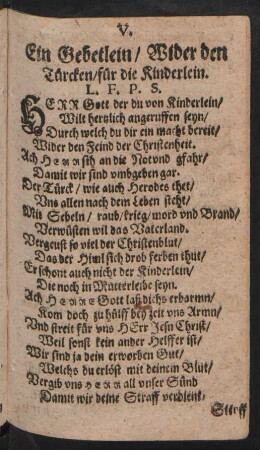 V.
Ein Gebetlein / Wider den
Türcken / für die Kinderlein.
L. F. P. S.
HERR Gott der du von Kinderlein /
Wilt hertzlich angeruffen seyn /
Durch welch du dir ein macht bereit /
Wider den Feind der Christenheit.
Ach HERR sih an die Not vnd gfahr /
Damit wir sind vmbgeben gar.
Der Türck / wie auch Herodes thet /
Vns allen nach dem Leben steht /
Mit Sebeln / raub / krieg / mord vnd Brand /
Verwüsten wil das Vaterland.
Vergeust so viel der Christenblut /
Das der Himl sich drob ferben thut /
Er schont auch nicht der Kinderlein /
Die noch in Mutterleibe seyn.
Ach HERRE Gott laß dichs erbarmn /
Kom doch zu hülff bey zeit vns Armn /
Vnd streit für vns HErr Jesu Christ /
Weil sonst kein ander Helffer ist /
Wir sind ja dein erworben Gut /
Welchs du erlöst mit deinem Blut /
Vergib vns HERR all vnser Sünd
Damit wir deine Straff verdient.
Straff